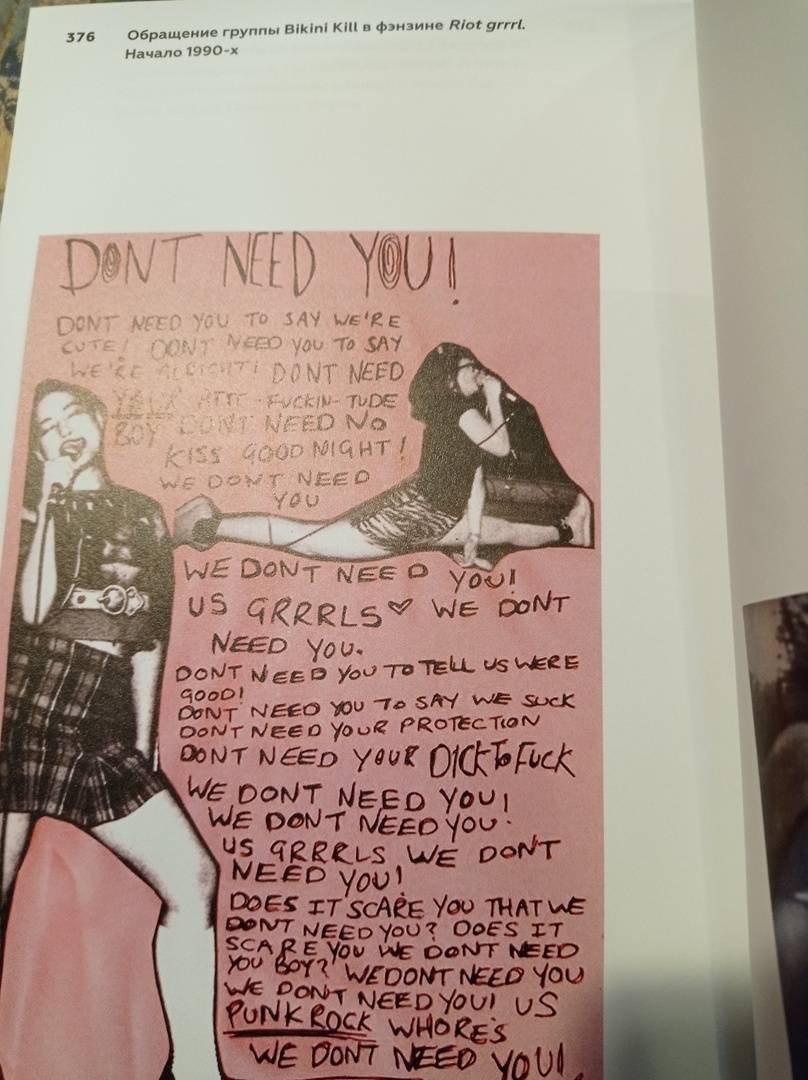 376
Обращение группы Bikini Kill в фэнзине Riot grrrl.
Начало 1990-х
DONT NEED YOU!
DONT NEED YOU TO SAY WE'RE
CUTE! DONT NEED YOU TO SAY
WE'RE ALRIGHT! DONT NEED
YALL ATTI-FUCKIN-TUDE
BOY DONT NEED NO
KISS GOOD NIGHT!
WE DONT NEED
YOU
WE DONT NEED YOU!
US GRRRLS♡ WE DONT
NEED YOU.
DONT NEED YOU TO TELL US WERE
GOOD!
DONT NEED YOU TO SAY WE SUCK
DONT NEED YOUR PROTECTION
DONT NEED YOUR DICK TO FUCK
WE DONT NEED YOU!
WE DONT NEED YOU.
US GRRRLS WE DON'T
NEED YOU!
DOES IT SCARE YOU THAT WE
DONT NEED YOU? DOES IT
SCARE YOU WE DONT NEED
YOU BOY? WE DONT NEED YOU
WE DON'T NEED YOU! US
PUNK ROCK WHORE'S
WE DONT NEED YOU!